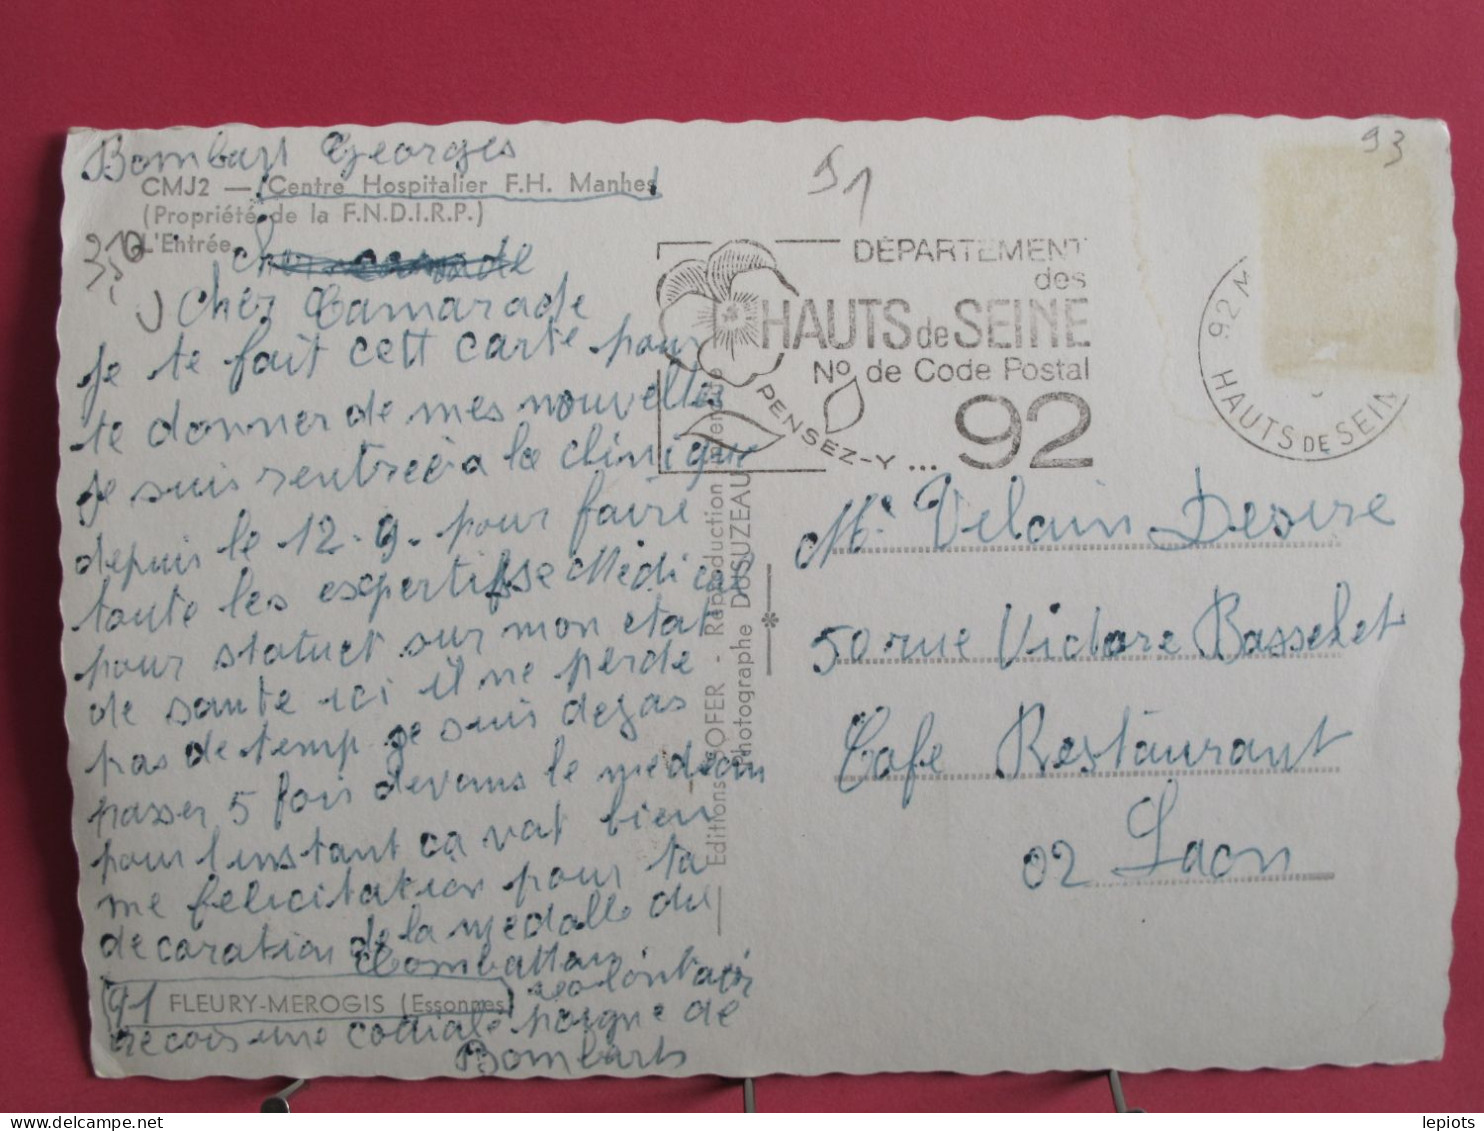 93
51
Bombart Georges
CMJ2 — Centre Hospitalier F.H. Manhes
(Propriété de la F.N.D.I.R.P.)
L'Entrée
350
Cher camarade
Cher Camarade
Je te fait cett carte pour
te donner de mes nouvelles
Je suis rentrée a la clinique
depuis le 12.9. pour faire
toute les expertisse Médical
pour statuet sur mon etat
de sante ici il ne perde
pas de temp je suis dejas
passer 5 fois devans le medecin
pour l'instant ca vat bien
me felicitation pour ta
decoration de la medalle du
Combattan
volontair
91 FLEURY-MEROGIS (Essonnes)
recois une codiale poigne de
Bombarts
Editions SOFER - Reproduction interdite
Photographe DUSUZEAU
DÉPARTEMENT
des
HAUTS de SEINE
No de Code Postal
92
PENSEZ-Y ...
92 M
HAUTS DE SEIN
Mr Velain Desire
50 rue Victore Basselet
Cafe Restaurant
02 Laon
lepiots